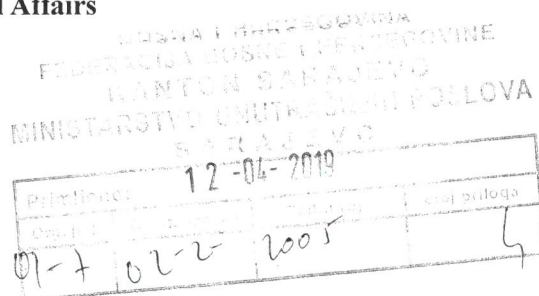 l Affairs
BOSNA I HERCEGOVINA
FEDERACIJA BOSNE I HERCEGOVINE
KANTON SARAJEVO
MINISTARSTVO UNUTRAŠNJIH POSLOVA
SARAJEVO
12-04-2019
Primljeno:
02-2- 2005 4